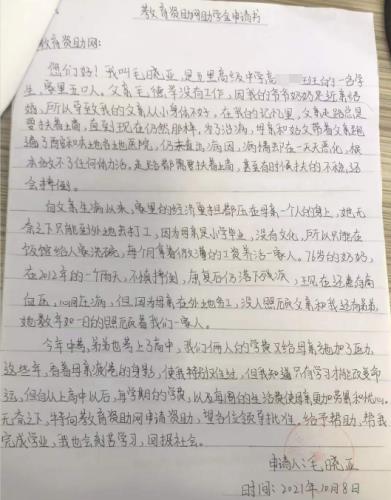 教育资助网助学金申请书
教育资助网：
您们好！我叫毛晓亚，是五里高级中学高 班的一名学
生，家里五口人。父亲毛德军没有工作，因我的爷爷奶奶是近亲结
婚，所以导致我的父亲从小身体不好，在我的记忆里，父亲走路总是
要扶着墙，直到现在仍然那样，为了治病，母亲和幼父带着父亲跑遍
了西安和咸阳各地医院，仍未查出病因，病情却在一天天恶化，根
本做不了任何体力活。走路都需要扶着墙，甚至有时候扶的不稳，还
会摔倒。
自父亲生病以来，家里的经济重担都压在母亲一个人的身上，她无
奈之下只能到外地去打工，因为母亲是小学毕业，没有文化，所以只能在
饭馆给人家洗碗，每个月拿着微薄的工资养活一家人。76岁的奶奶，
在2012年的一个雨天，不慎摔倒，康复后仍落下残疾，现在还患有高
血压，心脏病，但因为母亲在外地务工，没人照顾父亲和我还有弟弟，
她数年如一日的照顾着我们一家人。
今年中考，弟弟也考上了高中，我们俩人的学费又给母亲增加了压力。
这些年，看着母亲疲惫的身影，使我特别难过，但我知道只有学习才能改变命
运，但自从上高中以后，每学期的学费，以及每周的生活费使母亲更加劳累和忧心。
无奈之下，特向教育资助网申请资助，望各位领导批准，给予帮助，帮我
完成学业，我也会刻苦学习，回报社会。
申请人：毛晓亚
时间：2021年10月8日